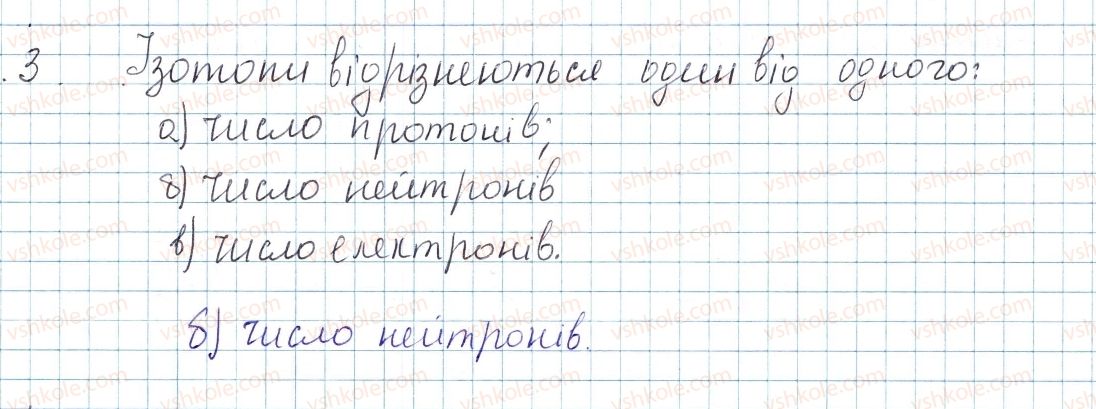 .3 Ізотопи відрізнеються один від одного:
а) число протонів;
б) число нейтронів
в) число електронів.
б) число нейтронів.